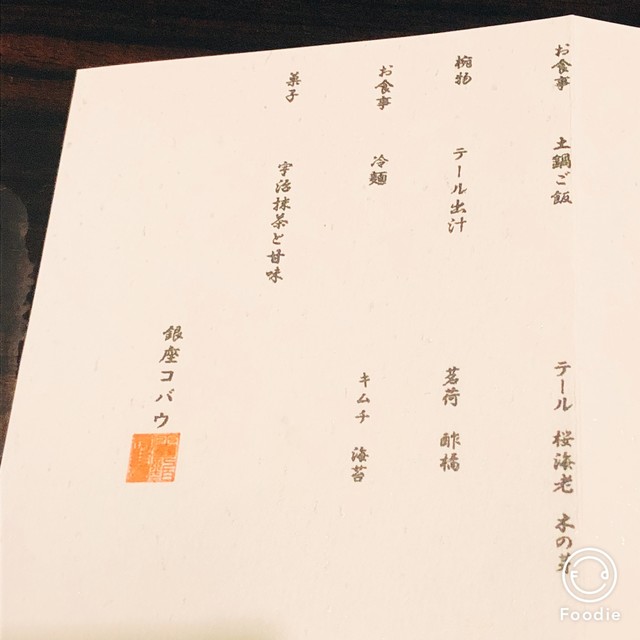 お食事 土鍋ご飯 テール 桜海老 木の芽
椀物 テール出汁 茗荷 酢橘
お食事 冷麺 キムチ 海苔
菓子 宇治抹茶と甘味
銀座コバウ
Foodie